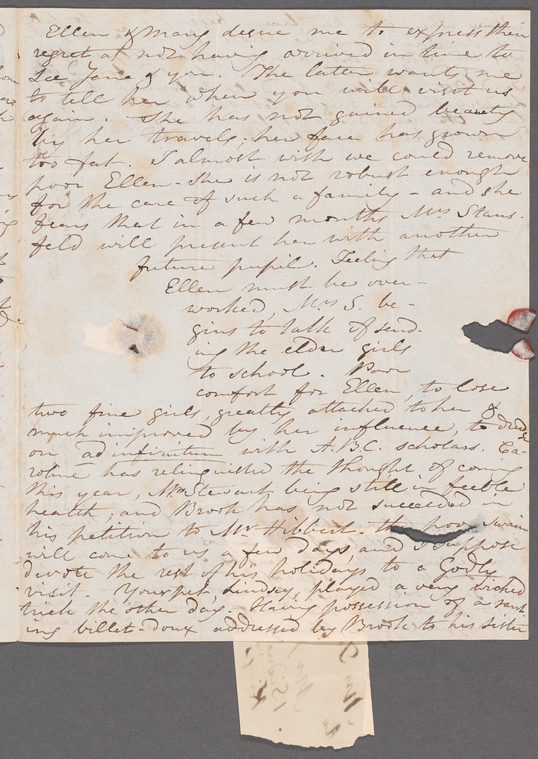 Ellen & Mary desire me to express their
regret at not having arrived in time to
see Jane & you. The later wants me
to tell her when you will visit us
again. She has not gained beauty
by her travels; her face has grown
too fat. I almost wish we could remove
poor Ellen - she is not robust enough
for the care of such a family - and she
fears that in a few months Mrs Stans-
feld will present her with another
future pupil. Feeling that
Ellen must be over-
worked, Mrs S. be-
gins to talk of send-
ing the elder girls
to school. Poor
comfort for Ellen, to lose
two fine girls, greatly attached to her &
much improved by her influence, to
on ad infinitum with A.B.C. scholars. Ca-
roline has relinquished the thought of coming
this year, Mrs Stewart being still in feeble
health, and Brook has not succeeded in
his petition to Mr Hibbert - the poor swain
will come to us a few days and I suppose
devote the rest of his holidays to a
visit. Your pet, Lindsey, played a very
trick the other day. Having possession of a
ing billet-doux addressed by Brook to his sister